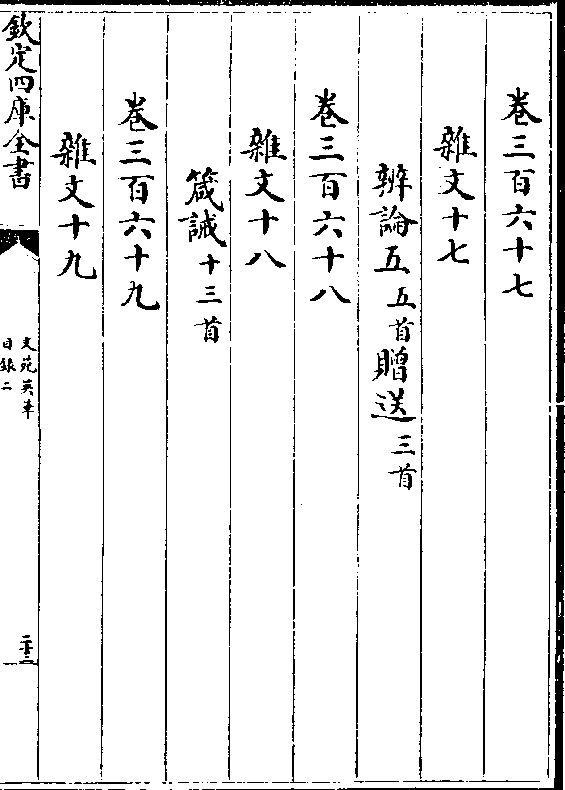 卷三百六十七
雜文十七
辨論五五首贈送三首
卷三百六十八
雜文十八
箴誡十三首
卷三百六十九
雜文十九
欽定四庫全書
文苑英華
目錄二
二十三